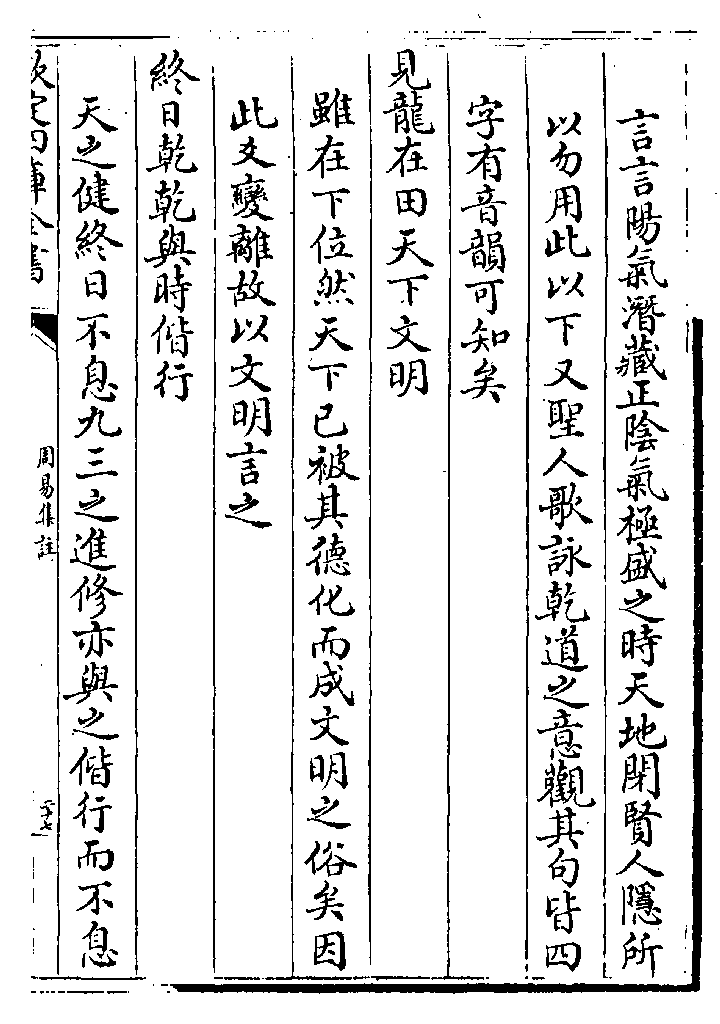 言言陽氣潛藏正陰氣極盛之時天地閉賢人隱所
以勿用此以下又聖人歌詠乾道之意觀其句皆四
字有音韻可知矣
見龍在田天下文明
雖在下位然天下已被其德化而成文明之俗矣因
此爻變離故以文明言之
終日乾乾與時偕行
天之健終日不息九三之進修亦與之偕行而不息
欽定四庫全書
周易集註
二十七